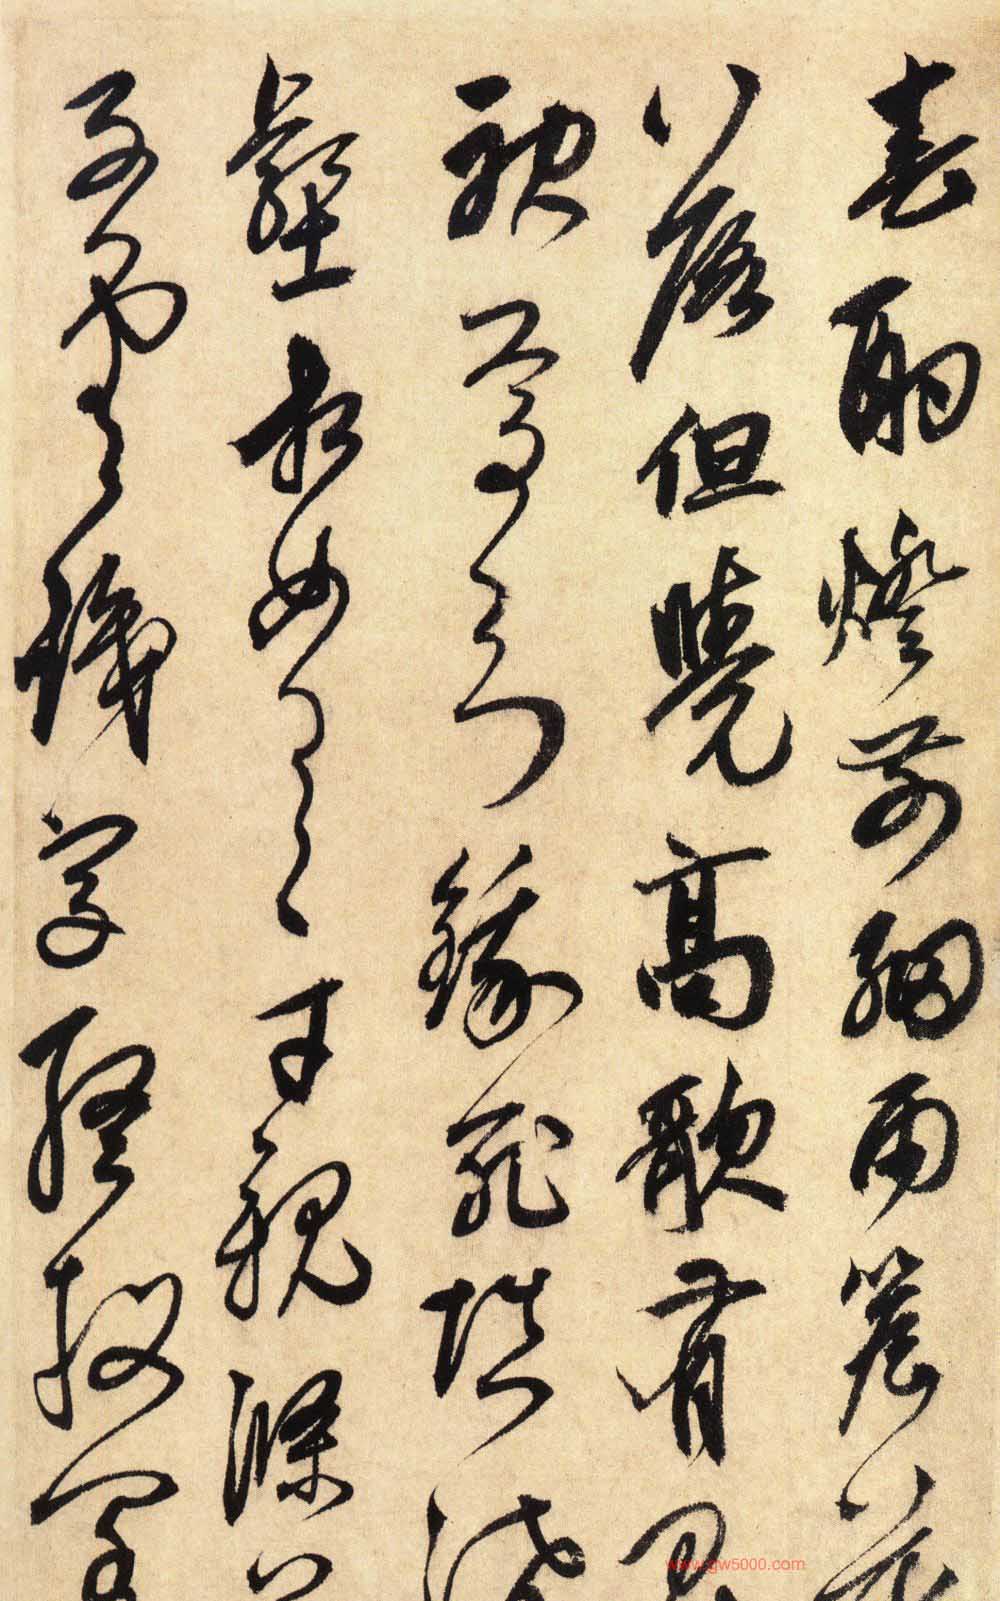 春酌燈前細雨簷花
落但覺高歌有鬼
神焉知餓死填溝
壑相如逸才親滌
子雲識字終投閣
www.gw5000.com